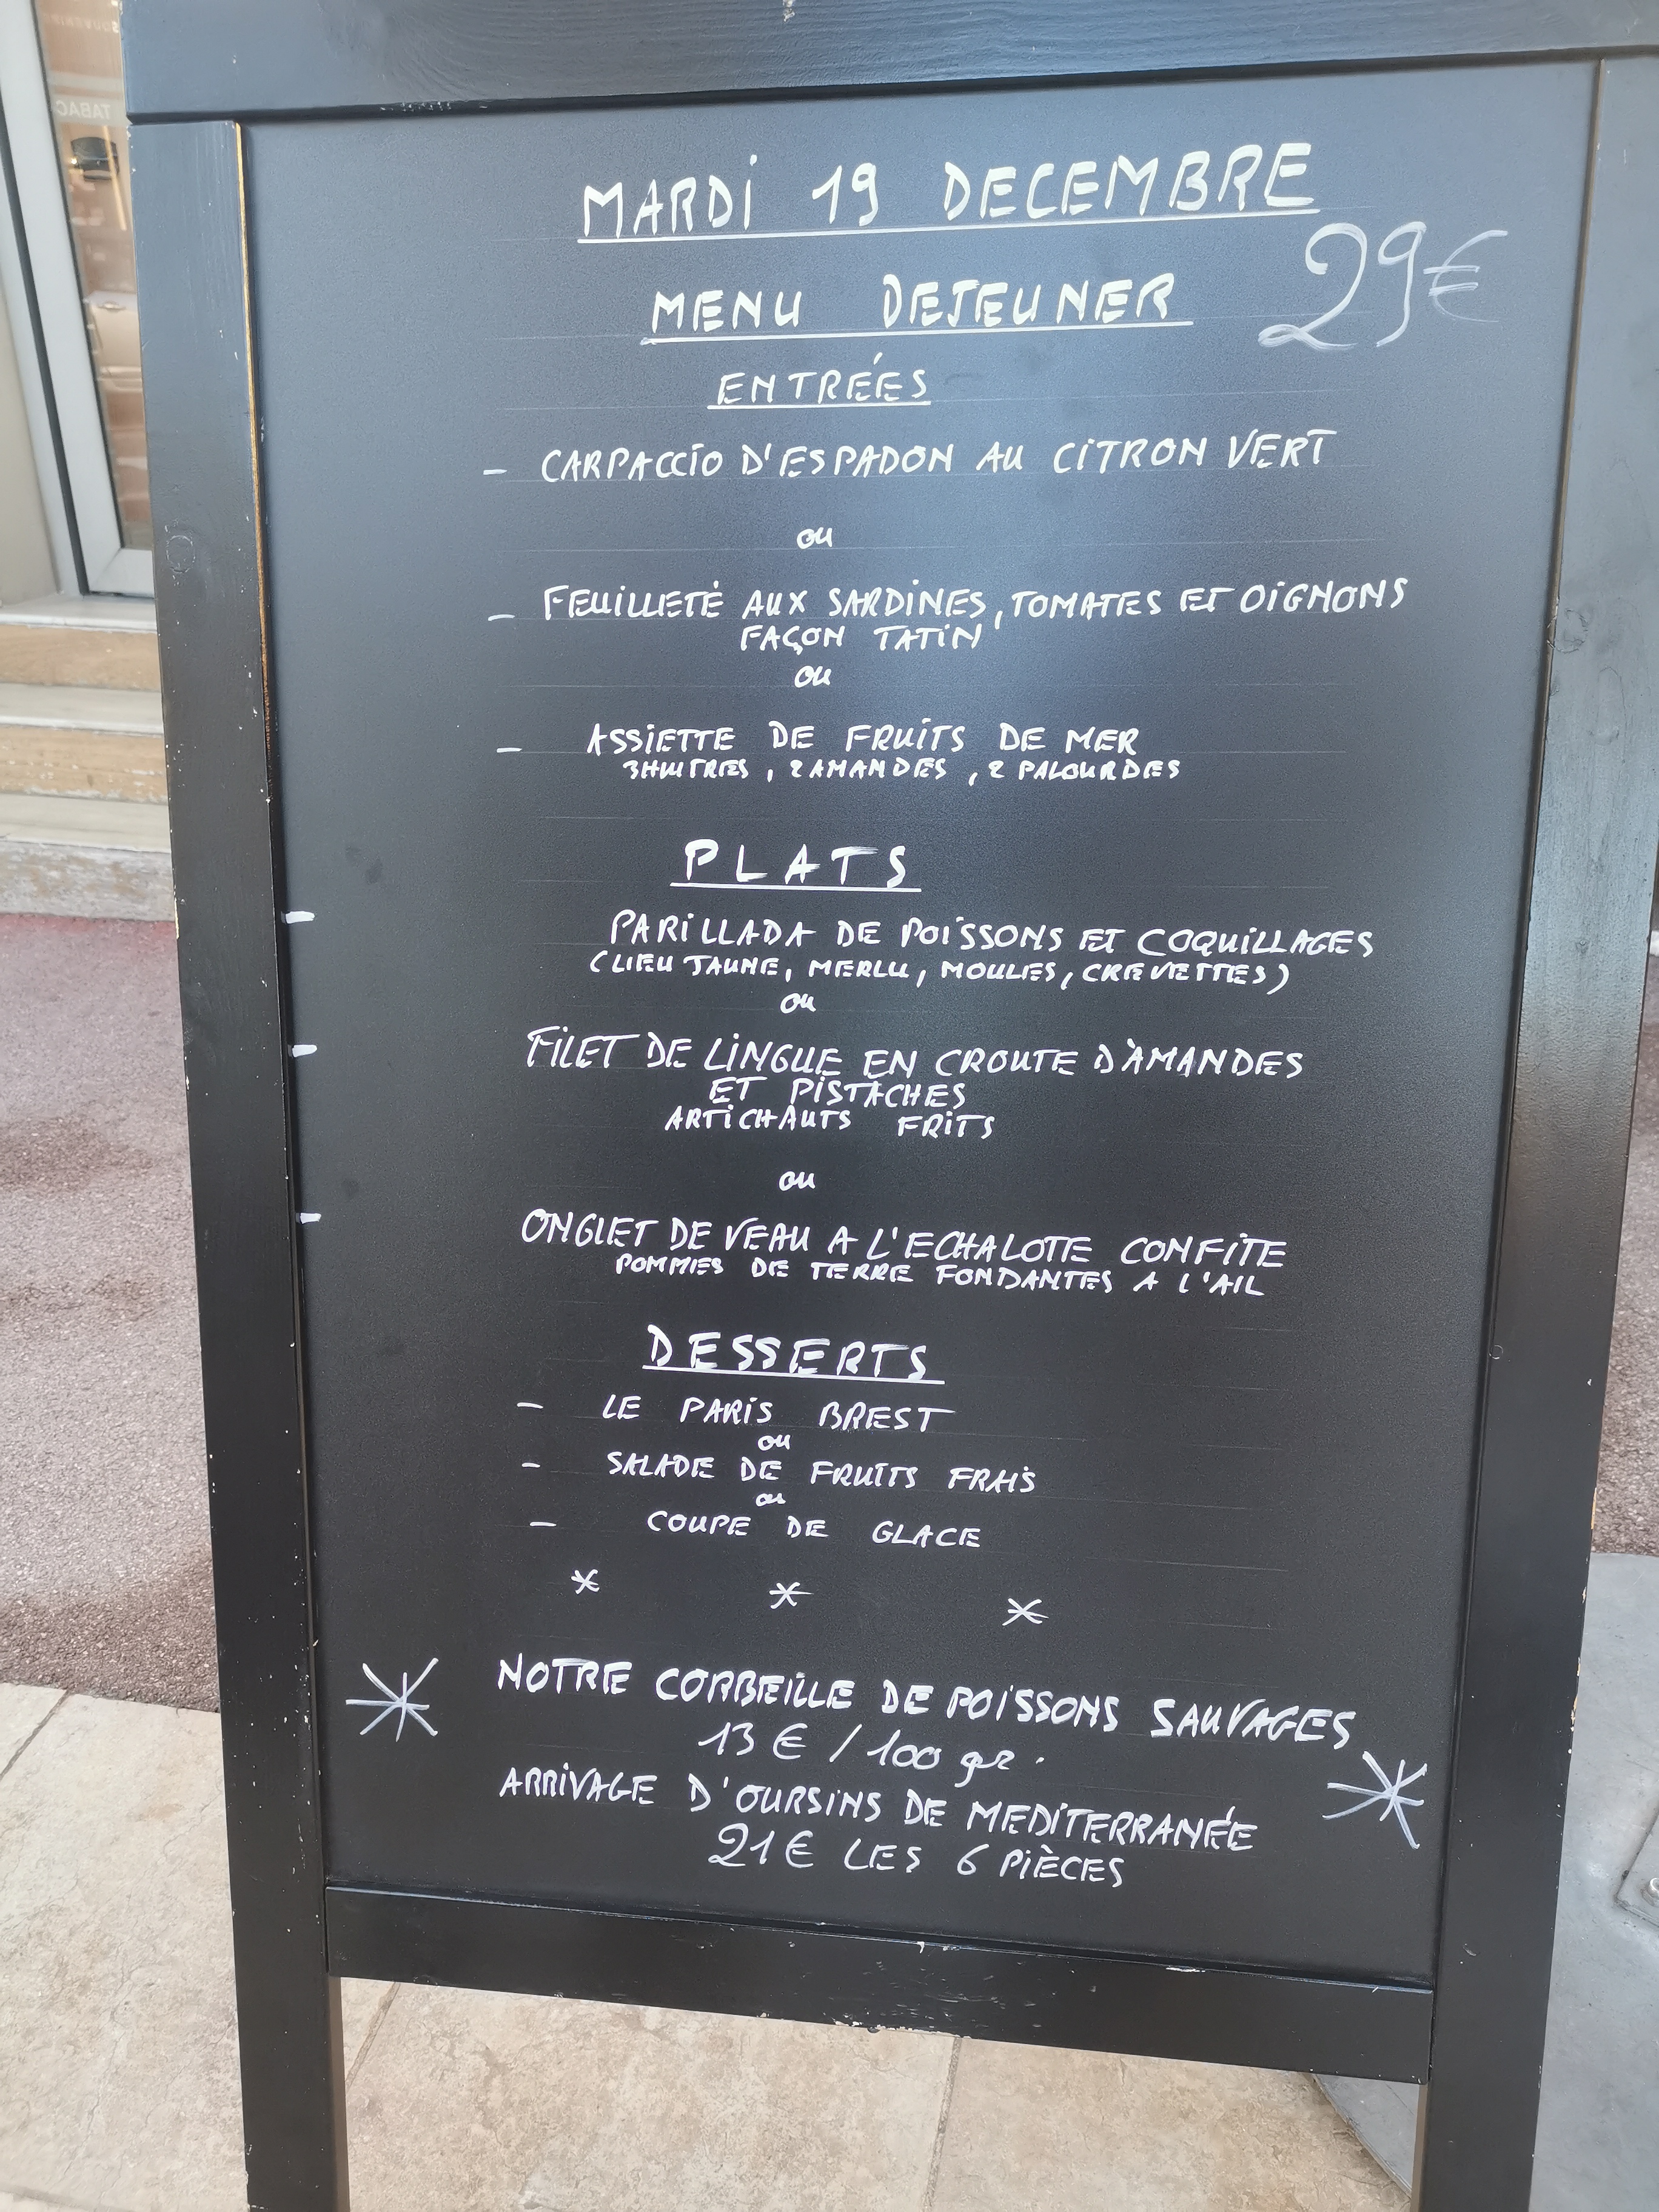 MARDI 19 DECEMBRE
MENU DEJEUNER 29€
ENTRÉES
- CARPACCIO D'ESPADON AU CITRON VERT
ou
- FEUILLETÉ AUX SARDINES, TOMATES ET OIGNONS
FAÇON TATIN
ou
- ASSIETTE DE FRUITS DE MER
3 HUITRES, 2 AMANDES, 2 PALOURDES
PLATS
- PARILLADA DE POISSONS ET COQUILLAGES
(LIEU JAUNE, MERLU, MOULES, CREVETTES)
ou
- FILET DE LINGUE EN CROUTE D'AMANDES
ET PISTACHES
ARTICHAUTS FRITS
ou
- ONGLET DE VEAU A L'ECHALOTTE CONFITE
POMMES DE TERRE FONDANTES A L'AIL
DESSERTS
- LE PARIS BREST
ou
- SALADE DE FRUITS FRAIS
ou
- COUPE DE GLACE
* * *
* NOTRE CORBEILLE DE POISSONS SAUVAGES
13€ / 100 gr. *
ARRIVAGE D'OURSINS DE MEDITERRANÉE
21€ LES 6 PIÈCES
TABAC